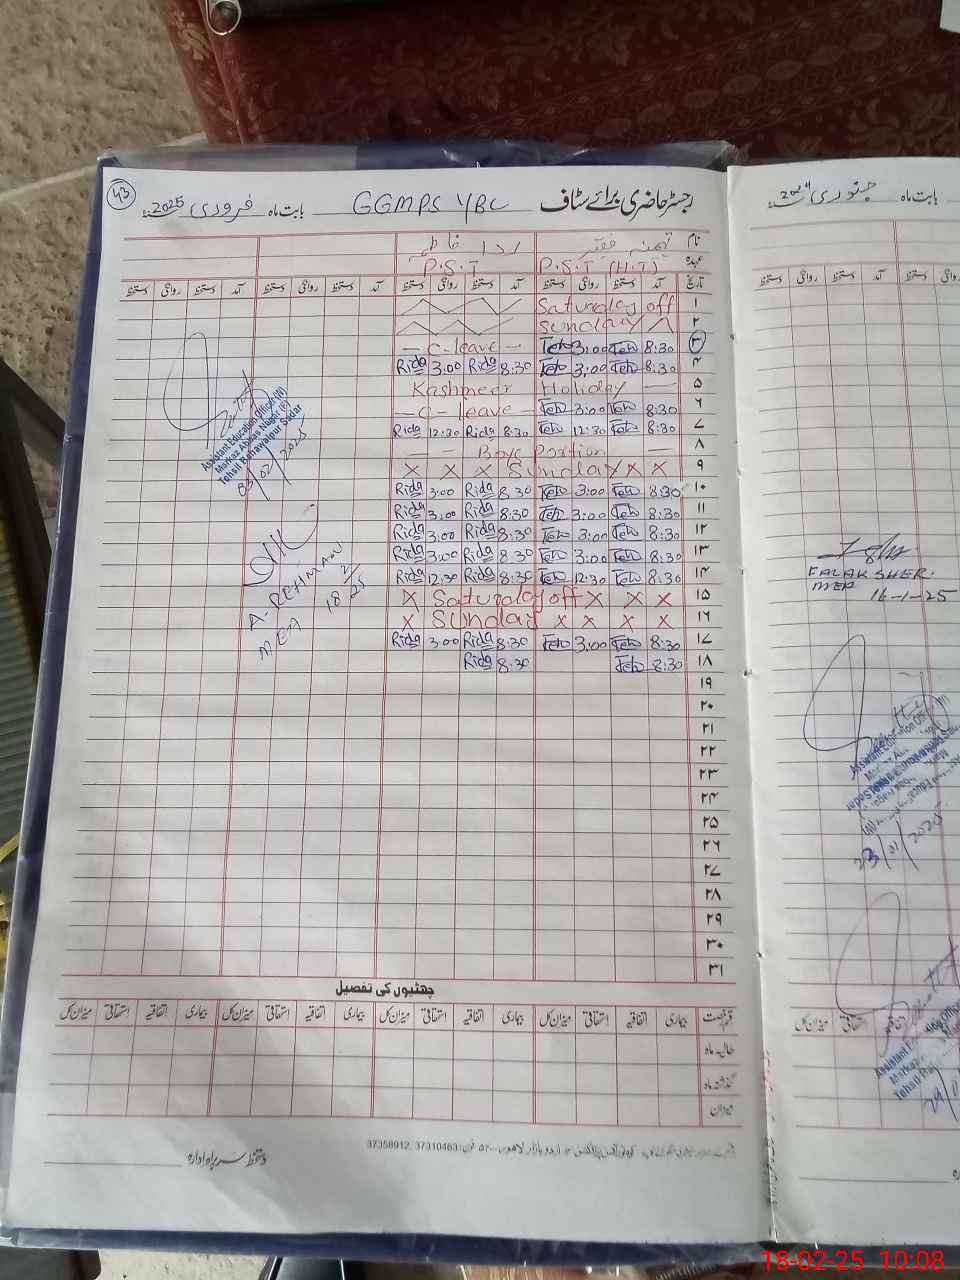 43
رجسٹر حاضری برائے سٹاف GGMPS 1/BC بابت ماہ فروری 2025ء
نام
عہدہ P.S.T (H.T) P.S.T
تاریخ آمد دستخط روانگی دستخط آمد دستخط روانگی دستخط آمد دستخط روانگی دستخط آمد دستخط روانگی دستخط
۱ Saturday off
۲ Sunday
۳ 8:30 Teh 3:00 Teh — C-leave —
۴ 8:30 Teh 3:00 Teh 8:30 Rida 3:00 Rida
۵ Kashmeer Holiday —
۶ 8:30 Teh 3:00 Teh — C-leave —
۷ 8:30 Teh 12:30 Teh 8:30 Rida 12:30 Rida
۸ — — Boye Portion —
۹ X X X Sunday X X X
۱۰ 8:30 Teh 3:00 Teh 8:30 Rida 3:00 Rida
۱۱ 8:30 Teh 3:00 Teh 8:30 Rida 3:00 Rida
۱۲ 8:30 Teh 3:00 Teh 8:30 Rida 3:00 Rida
۱۳ 8:30 Teh 3:00 Teh 8:30 Rida 3:00 Rida
۱۴ 8:30 Teh 12:30 Teh 8:30 Rida 12:30 Rida
۱۵ X Saturday off X X X
۱۶ X Sunday X X X X
۱۷ 8:30 Teh 3:00 Teh 8:30 Rida 3:00 Rida
۱۸ 8:30 Teh 8:30 Rida
۱۹
۲۰
۲۱
۲۲
۲۳
۲۴
۲۵
۲۶
۲۷
۲۸
۲۹
۳۰
۳۱
Assistant Education Officer (W)
Markaz Abbas Nagar (P)
Tehsil Bahawalpur Sadar
03/02/2025
A-REHMAN
MEA
18/2/25
چھٹیوں کی تفصیل
قسم رخصت بیماری اتفاقیہ استحقاقی میزان کل بیماری اتفاقیہ استحقاقی میزان کل بیماری اتفاقیہ استحقاقی میزان کل بیماری اتفاقیہ استحقاقی میزان کل
حالیہ ماہ
گذشتہ ماہ
میزان
37358912, 37310463
دستخط سربراہ ادارہ
بابت ماہ جنوری
آمد دستخط روانگی دستخط
FALAK SHER.
MEA 16-1-25
Assistant Education Officer (W)
23/01/2025
Assistant Education Officer
Markaz
Tehsil
میزان کل استحقاقی
18-02-25 10:08